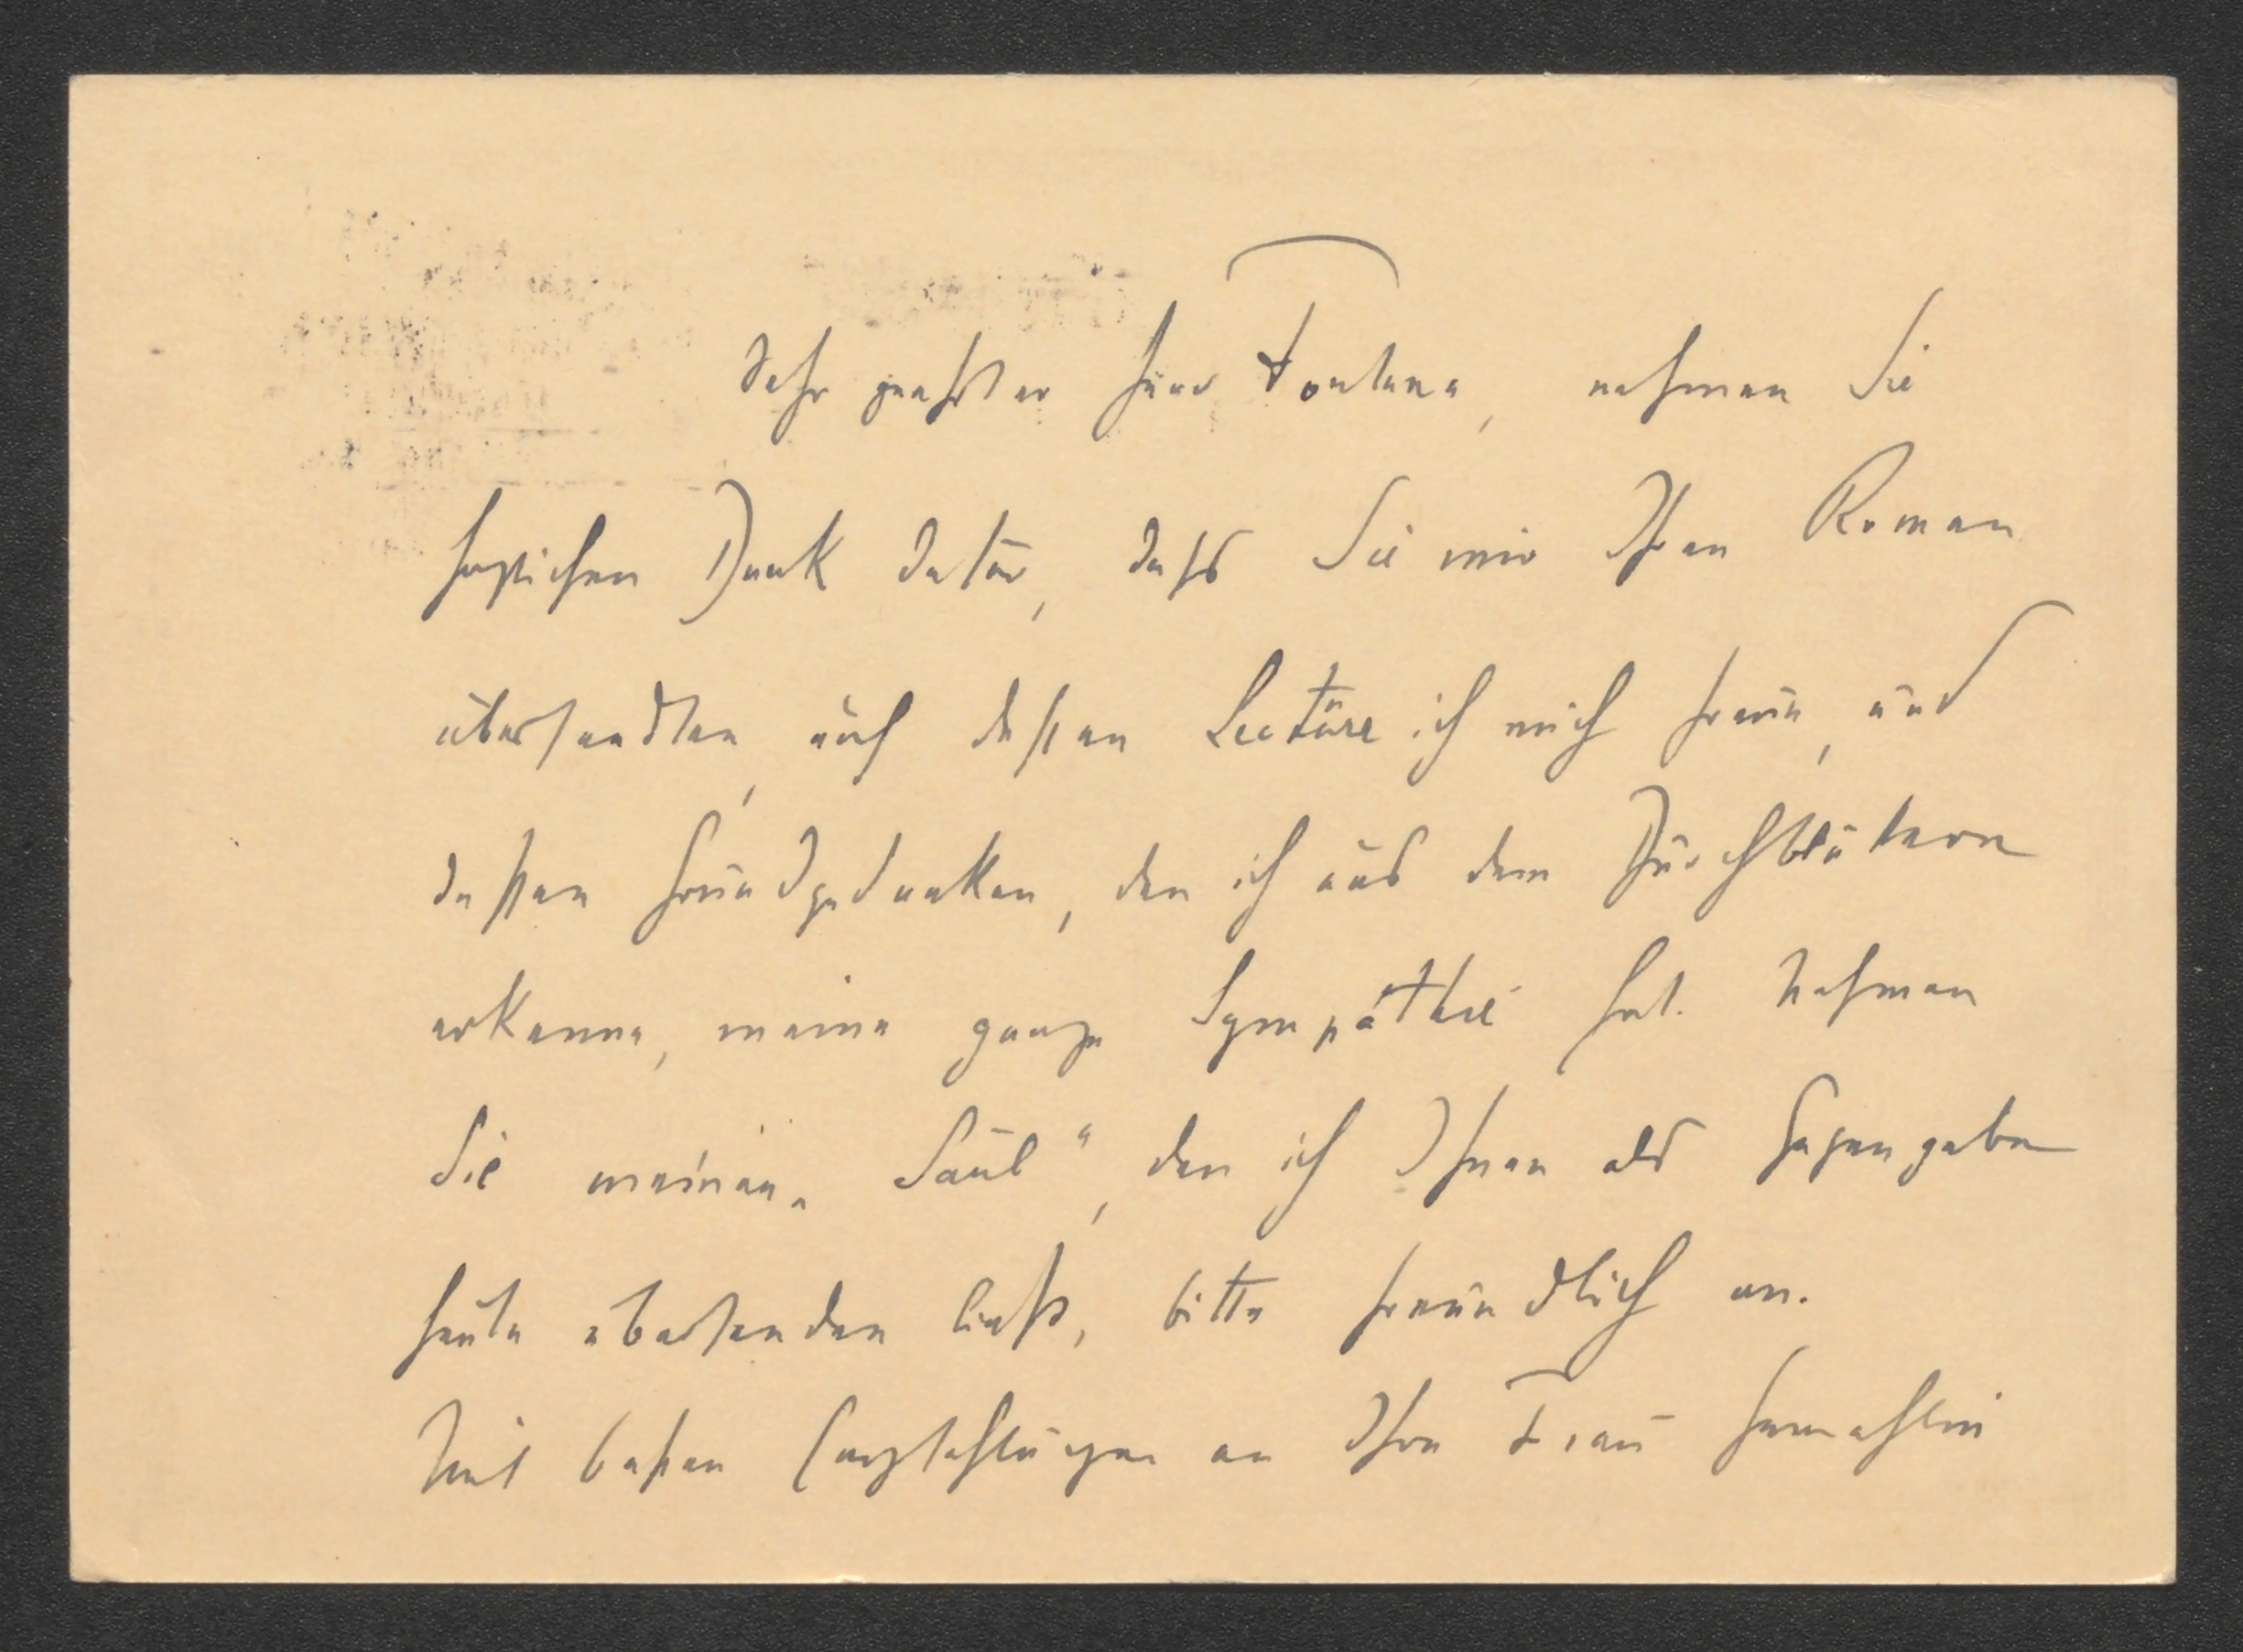 Sehr geehrter Herr Fontana, nehmen Sie
herzlichen Dank dafür, dass Sie mir Ihren Roman
übersandten, auf dessen Lectüre ich mich freue, und
dessen Grundgedanken, den ich aus dem Durchblättern
erkenne, meine ganze Sympathie hat. Nehmen
Sie meinen „Saul“, den ich Ihnen als Gegengabe
heute übersenden liess, bitte freundlich an.
Mit besten Empfehlungen an Ihre Frau Gemahlin